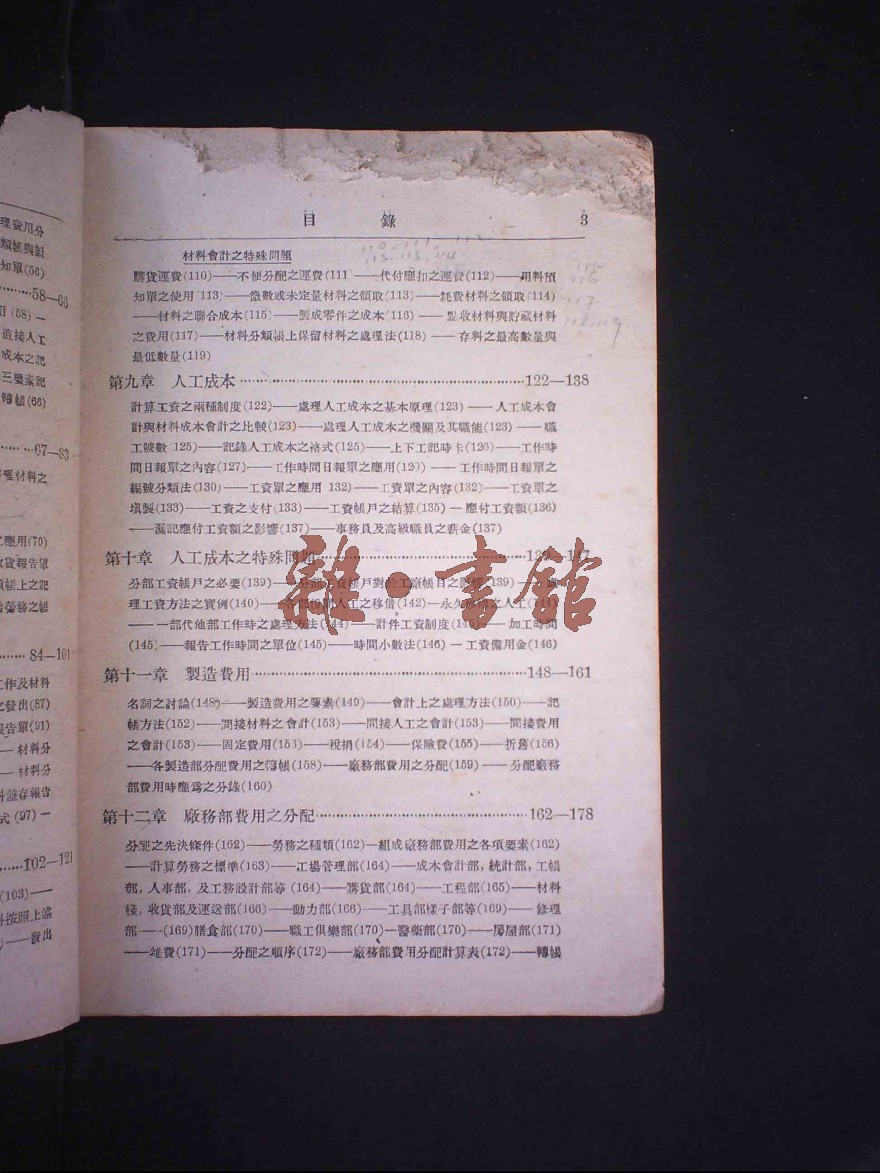 理費用分
類帳與對
知單(56)
58—66
用(58)—
直接人工
成本之記
三要素記
轉帳(66)
67—83
應用(70)
收貨報告單
84—101
工作及材料
之發出(87)
報告單(91)
— 材料分
— 材料分
式(97)—
102—121
(103)——
發出
目 錄 3
材料會計之特殊問題
110, 111, 112
113, 113, 114
115
116
117
購貨運費(110)——不便分配之運費(111——代付應扣之運費(112)——用料預
知單之使用 113)——微數或未定量材料之領取(113)——耗費材料之領取(114)
——材料之聯合成本(115)——製成零件之成本(116)—— 點收材料與貯藏材料
之費用(117)——材料分類帳上保留材料之處理法(118)—— 存料之最高數量與
最低數量(119)
第九章 人工成本…………122—138
計算工資之兩種制度(122)——處理人工成本之基本原理(123) —— 人工成本會
計與材料成本會計之比較(123)——處理人工成本之機關及其職能(123) —— 職
工號數 125)——記錄人工成本之格式(125)——上下工記時卡(126)——工作時
間日報單之內容(127)——工作時間日報單之應用(129) —— 工作時間日報單之
編號分類法(130)——工資單之應用 132)——工資單之內容(132)——工資單之
填製(133)——工資之支付(133)——工資帳戶之結算(135)— 應付工資額(136)
——漏記應付工資額之影響(137)——事務員及高級職員之薪金(137)
第十章 人工成本之特殊問題…………139—147
分部工資帳戶之必要(139)——分部工資帳戶對於工廠帳目之影響(139)——處
理工資方法之實例(140)——各部份間人工之移借(142)—永久移轉之人工(144)
———部代他部工作時之處理方法(144)——計件工資制度(145)—— 加工時間
(145)——報告工作時間之單位(145)——時間小數法(146) — 工資備用金(146)
雜·書館
第十一章 製造費用…………148—161
名詞之討論(148)——製造費用之要素(149)——會計上之處理方法(150)——記
帳方法(152)——間接材料之會計(153)——間接人工之會計(153)——間接費用
之會計(153)——固定費用(153)——稅捐(154)——保險費(155)—— 折舊(156)
——各製造部分配費用之轉帳(158)——廠務部費用之分配(159) —— 分配廠務
部費用時應爲之分錄(160)
第十二章 廠務部費用之分配…………162—178
分配之先決條件(162)——勞務之種類(162)—組成廠務部費用之各項要素(162)
——計算勞務之標準(163)——工場管理部(164)——成本會計部,統計部,工帳
部,人事部,及工務設計部等(164)——購貨部(164)——工程部(165)——材料
棧,收貨部及運送部(166)——動力部(166)——工具部樣子部等(169)—— 修理
部——(169)膳食部(170)——職工俱樂部(170)—醫藥部(170)——房屋部(171)
——雜費(171)——分配之順序(172)——廠務部費用分配計算表(172)——轉帳